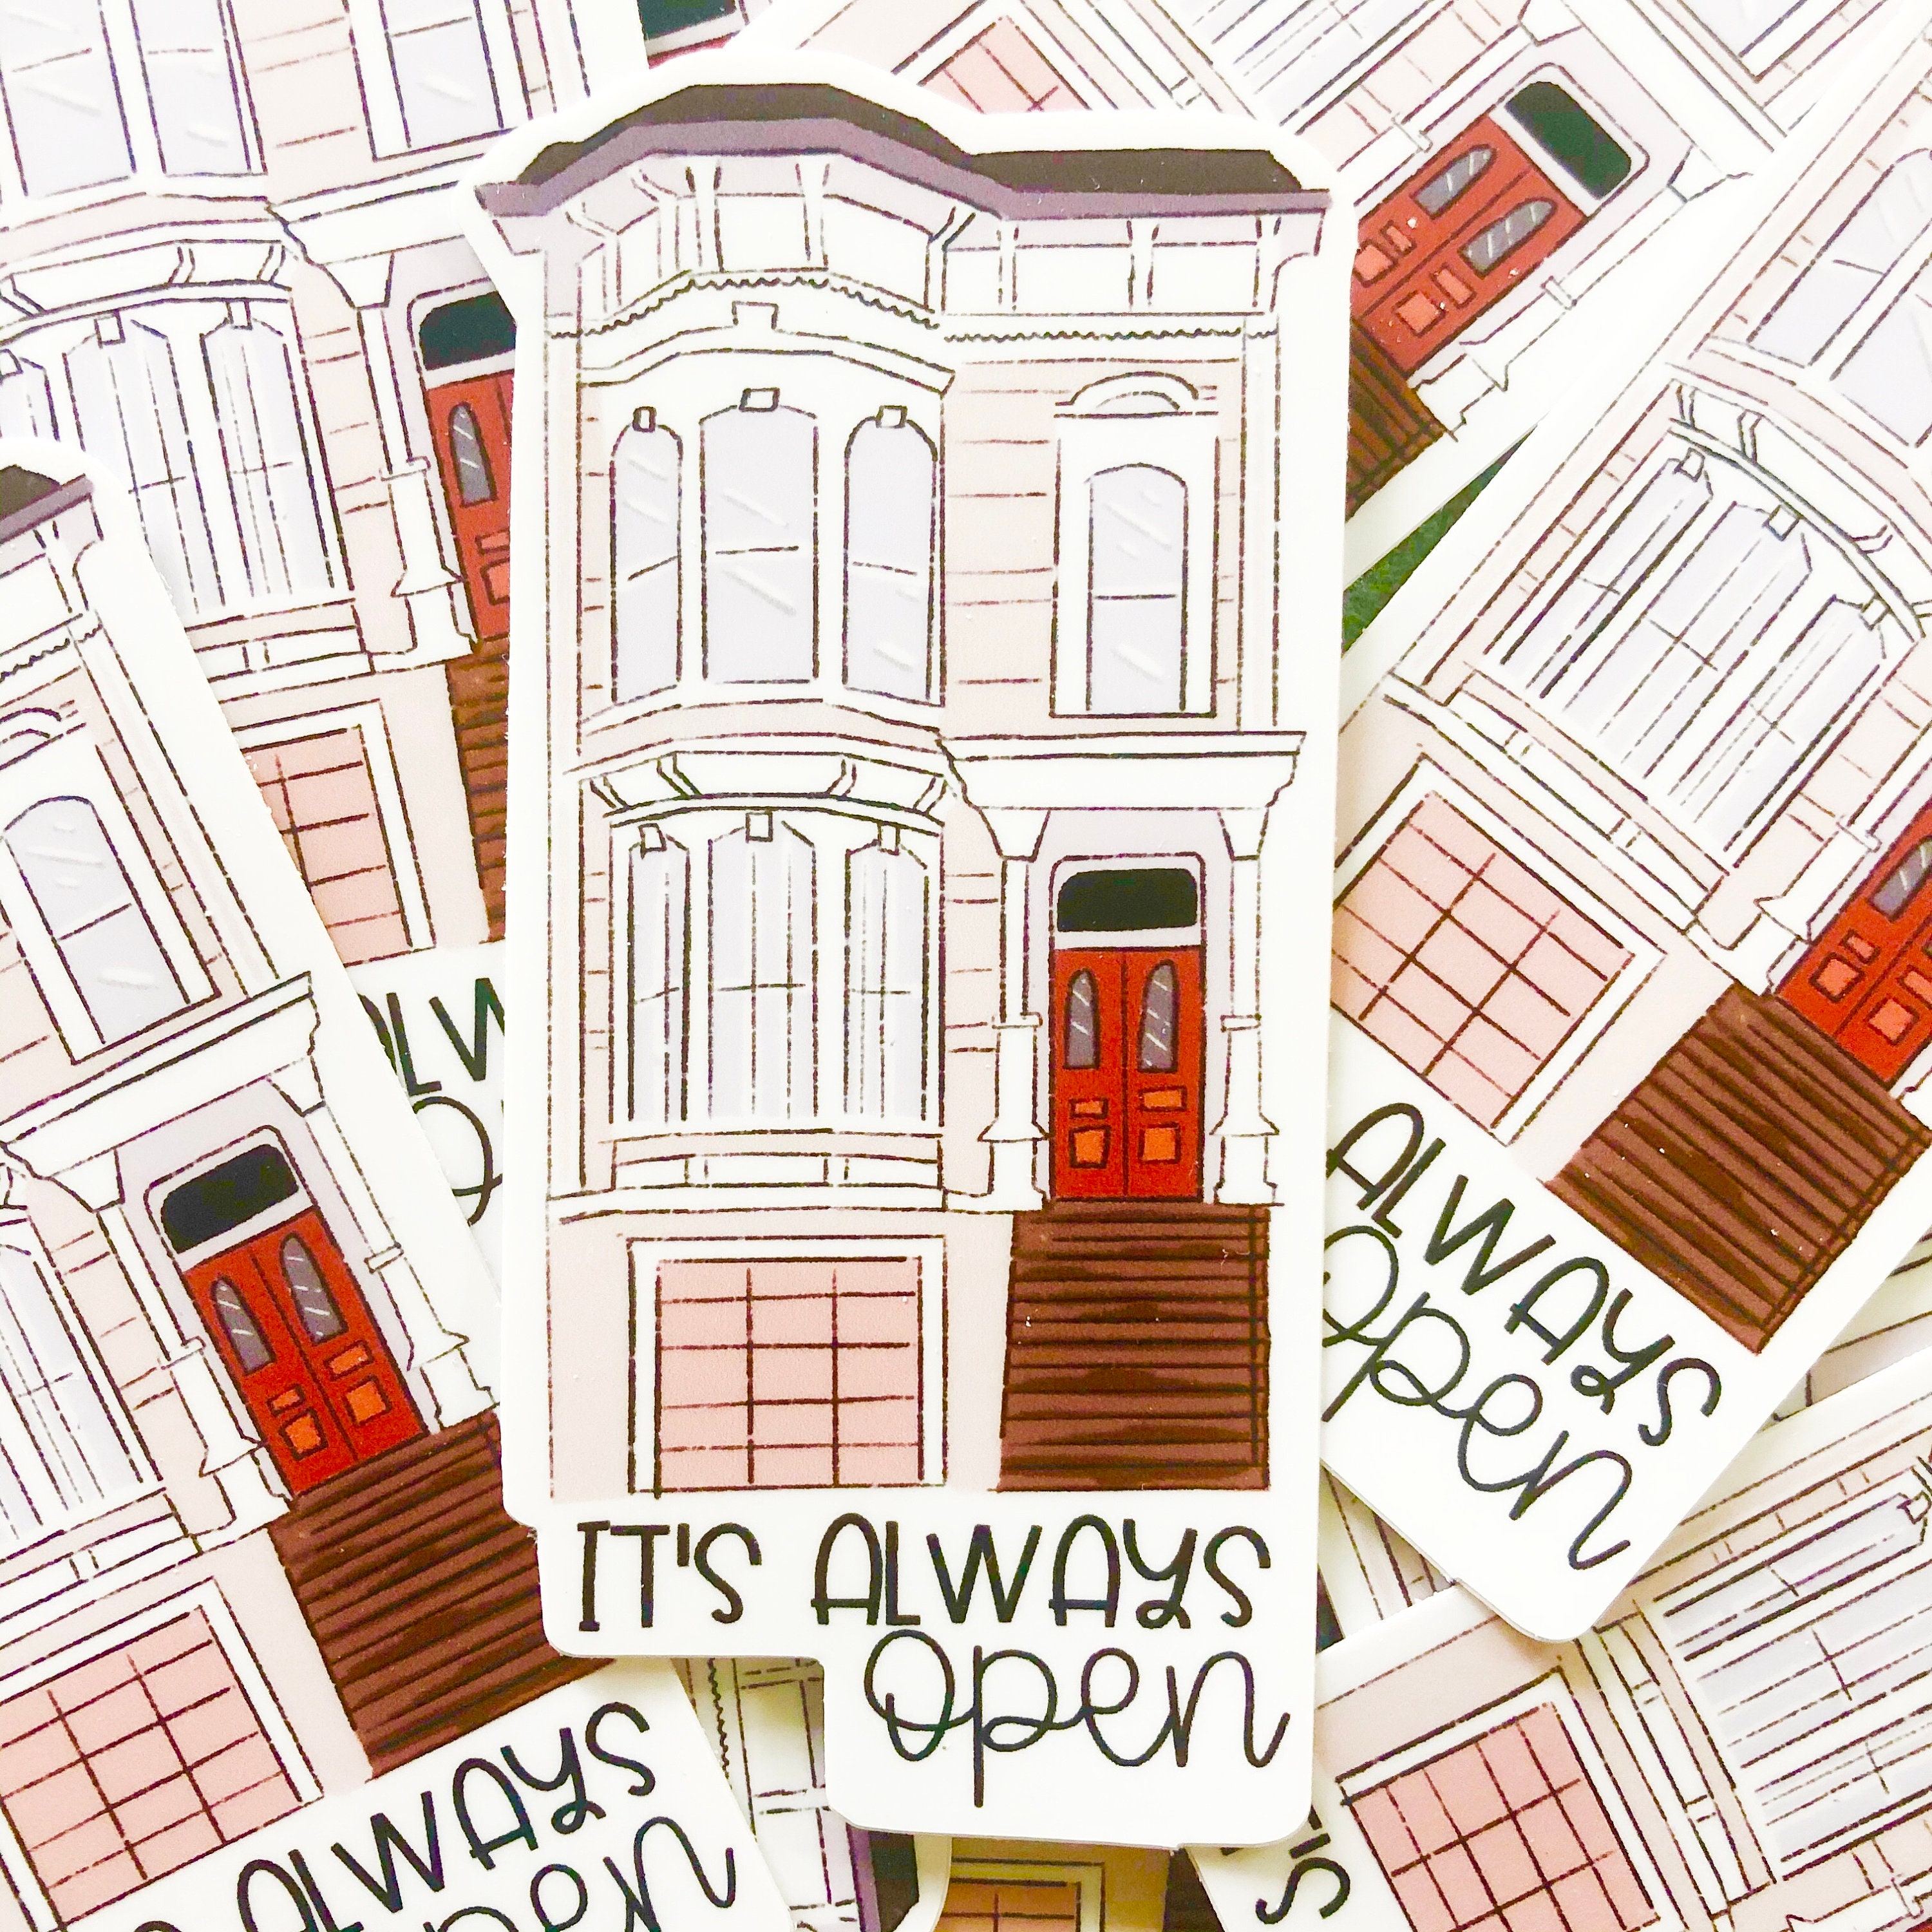 IT'S ALWAYS
open
ALWAYS
open
ALWAYS